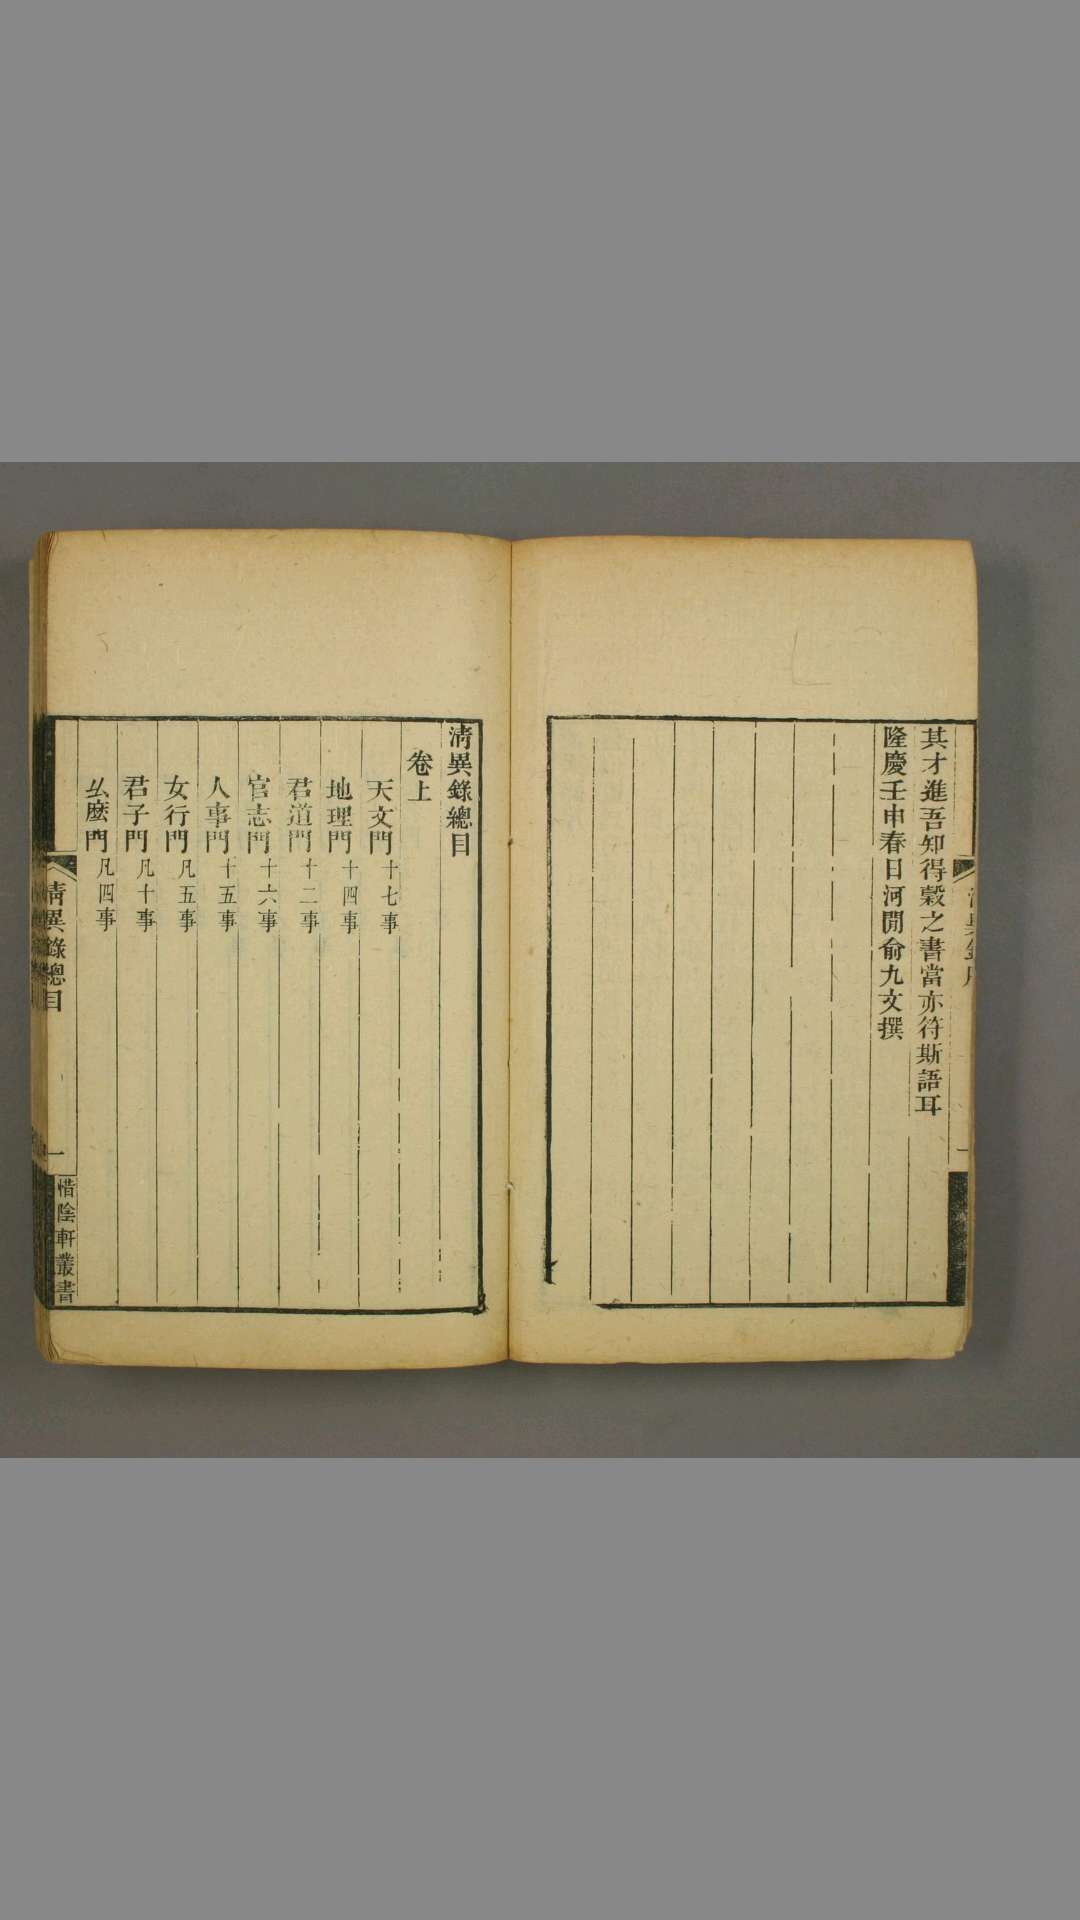 其才進吾知得穀之書當亦符斯語耳
隆慶壬申春日河閒俞九文撰
清異錄總目
卷上
天文門十七事
地理門十四事
君道門十二事
官志門十六事
人事門十五事
女行門凡五事
君子門凡十事
么麼門凡四事
清異錄總目
一
惜陰軒叢書